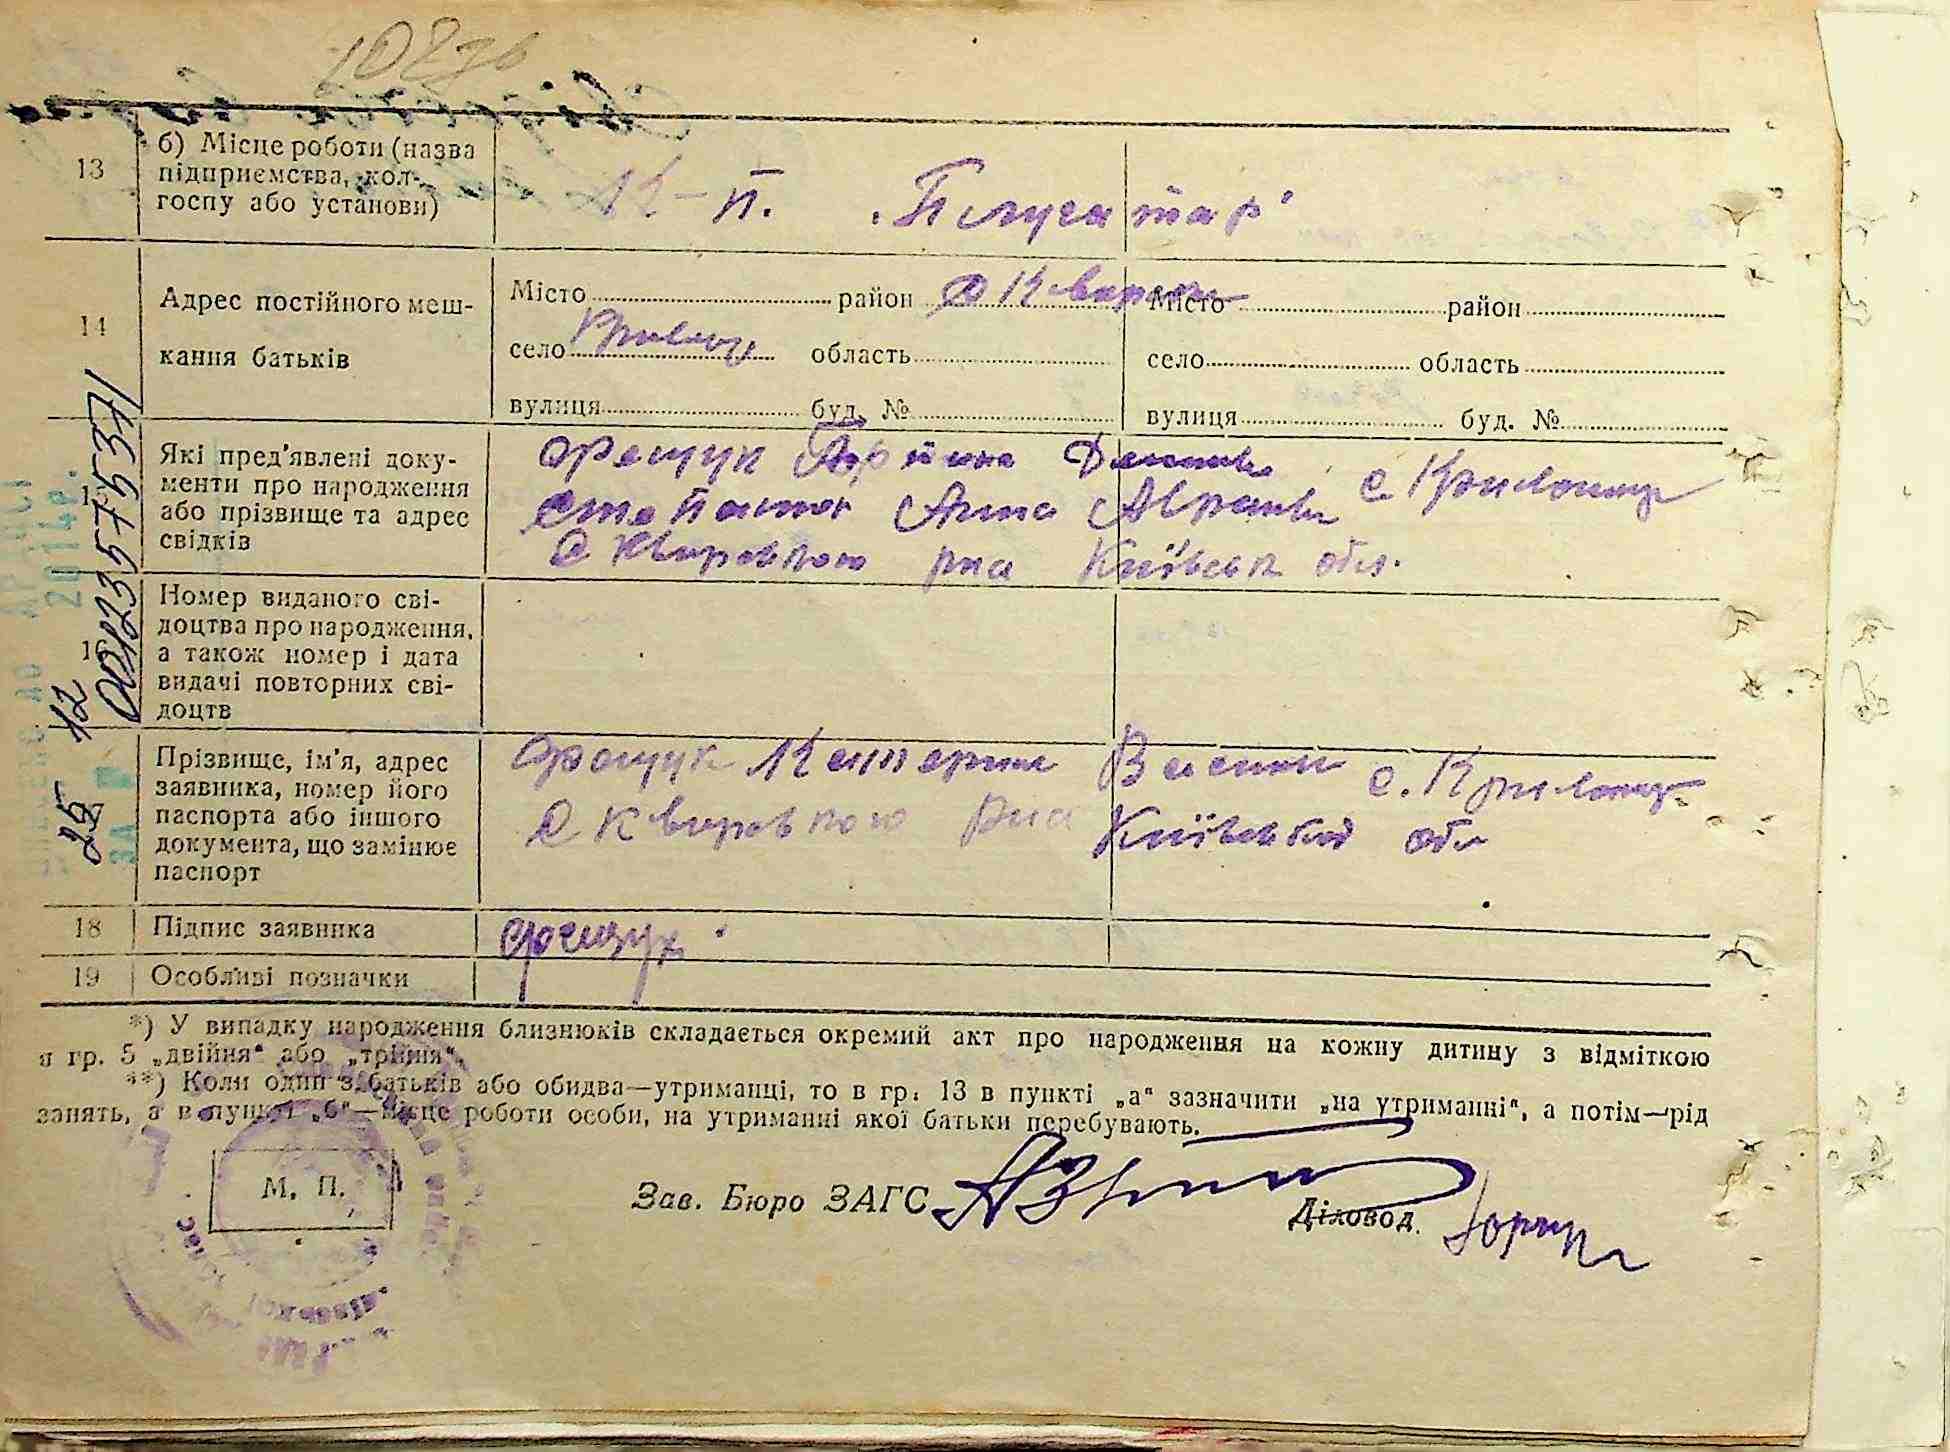 13
б) Місце роботи (назва
підприємства, кол-
госпу або установи)
К-п. „Плугатар"
14
Адрес постійного меш-
кання батьків
Місто район Сквирськ
село область
вулиця буд. №
Місто район
село область
вулиця буд. №
Які пред'явлені доку-
менти про народження
або прізвище та адрес
свідків
Фещук
Анна с. Криловиц
Сквирського р-на Київськ обл.
16
Номер виданого сві-
доцтва про народження,
а також номер і дата
видачі повторних сві-
доцтв
Прізвище, ім'я, адрес
заявника, номер його
паспорта або іншого
документа, що замінює
паспорт
Фещук Катерина с. Криловиц
Сквирського р-на Київської обл
18
Підпис заявника
Фещук
19
Особливі позначки
*) У випадку народження близнюків складається окремий акт про народження на кожну дитину з відміткою
в гр. 5 „двійня" або „трійня".
**) Коли один з батьків або обидва—утриманці, то в гр. 13 в пункті „а" зазначити „на утриманні", а потім—рід
занять, а в пункті „б"—місце роботи особи, на утриманні якої батьки перебувають.
М. П.
Зав. Бюро ЗАГС
Діловод
25 12 00123575371
2014р.